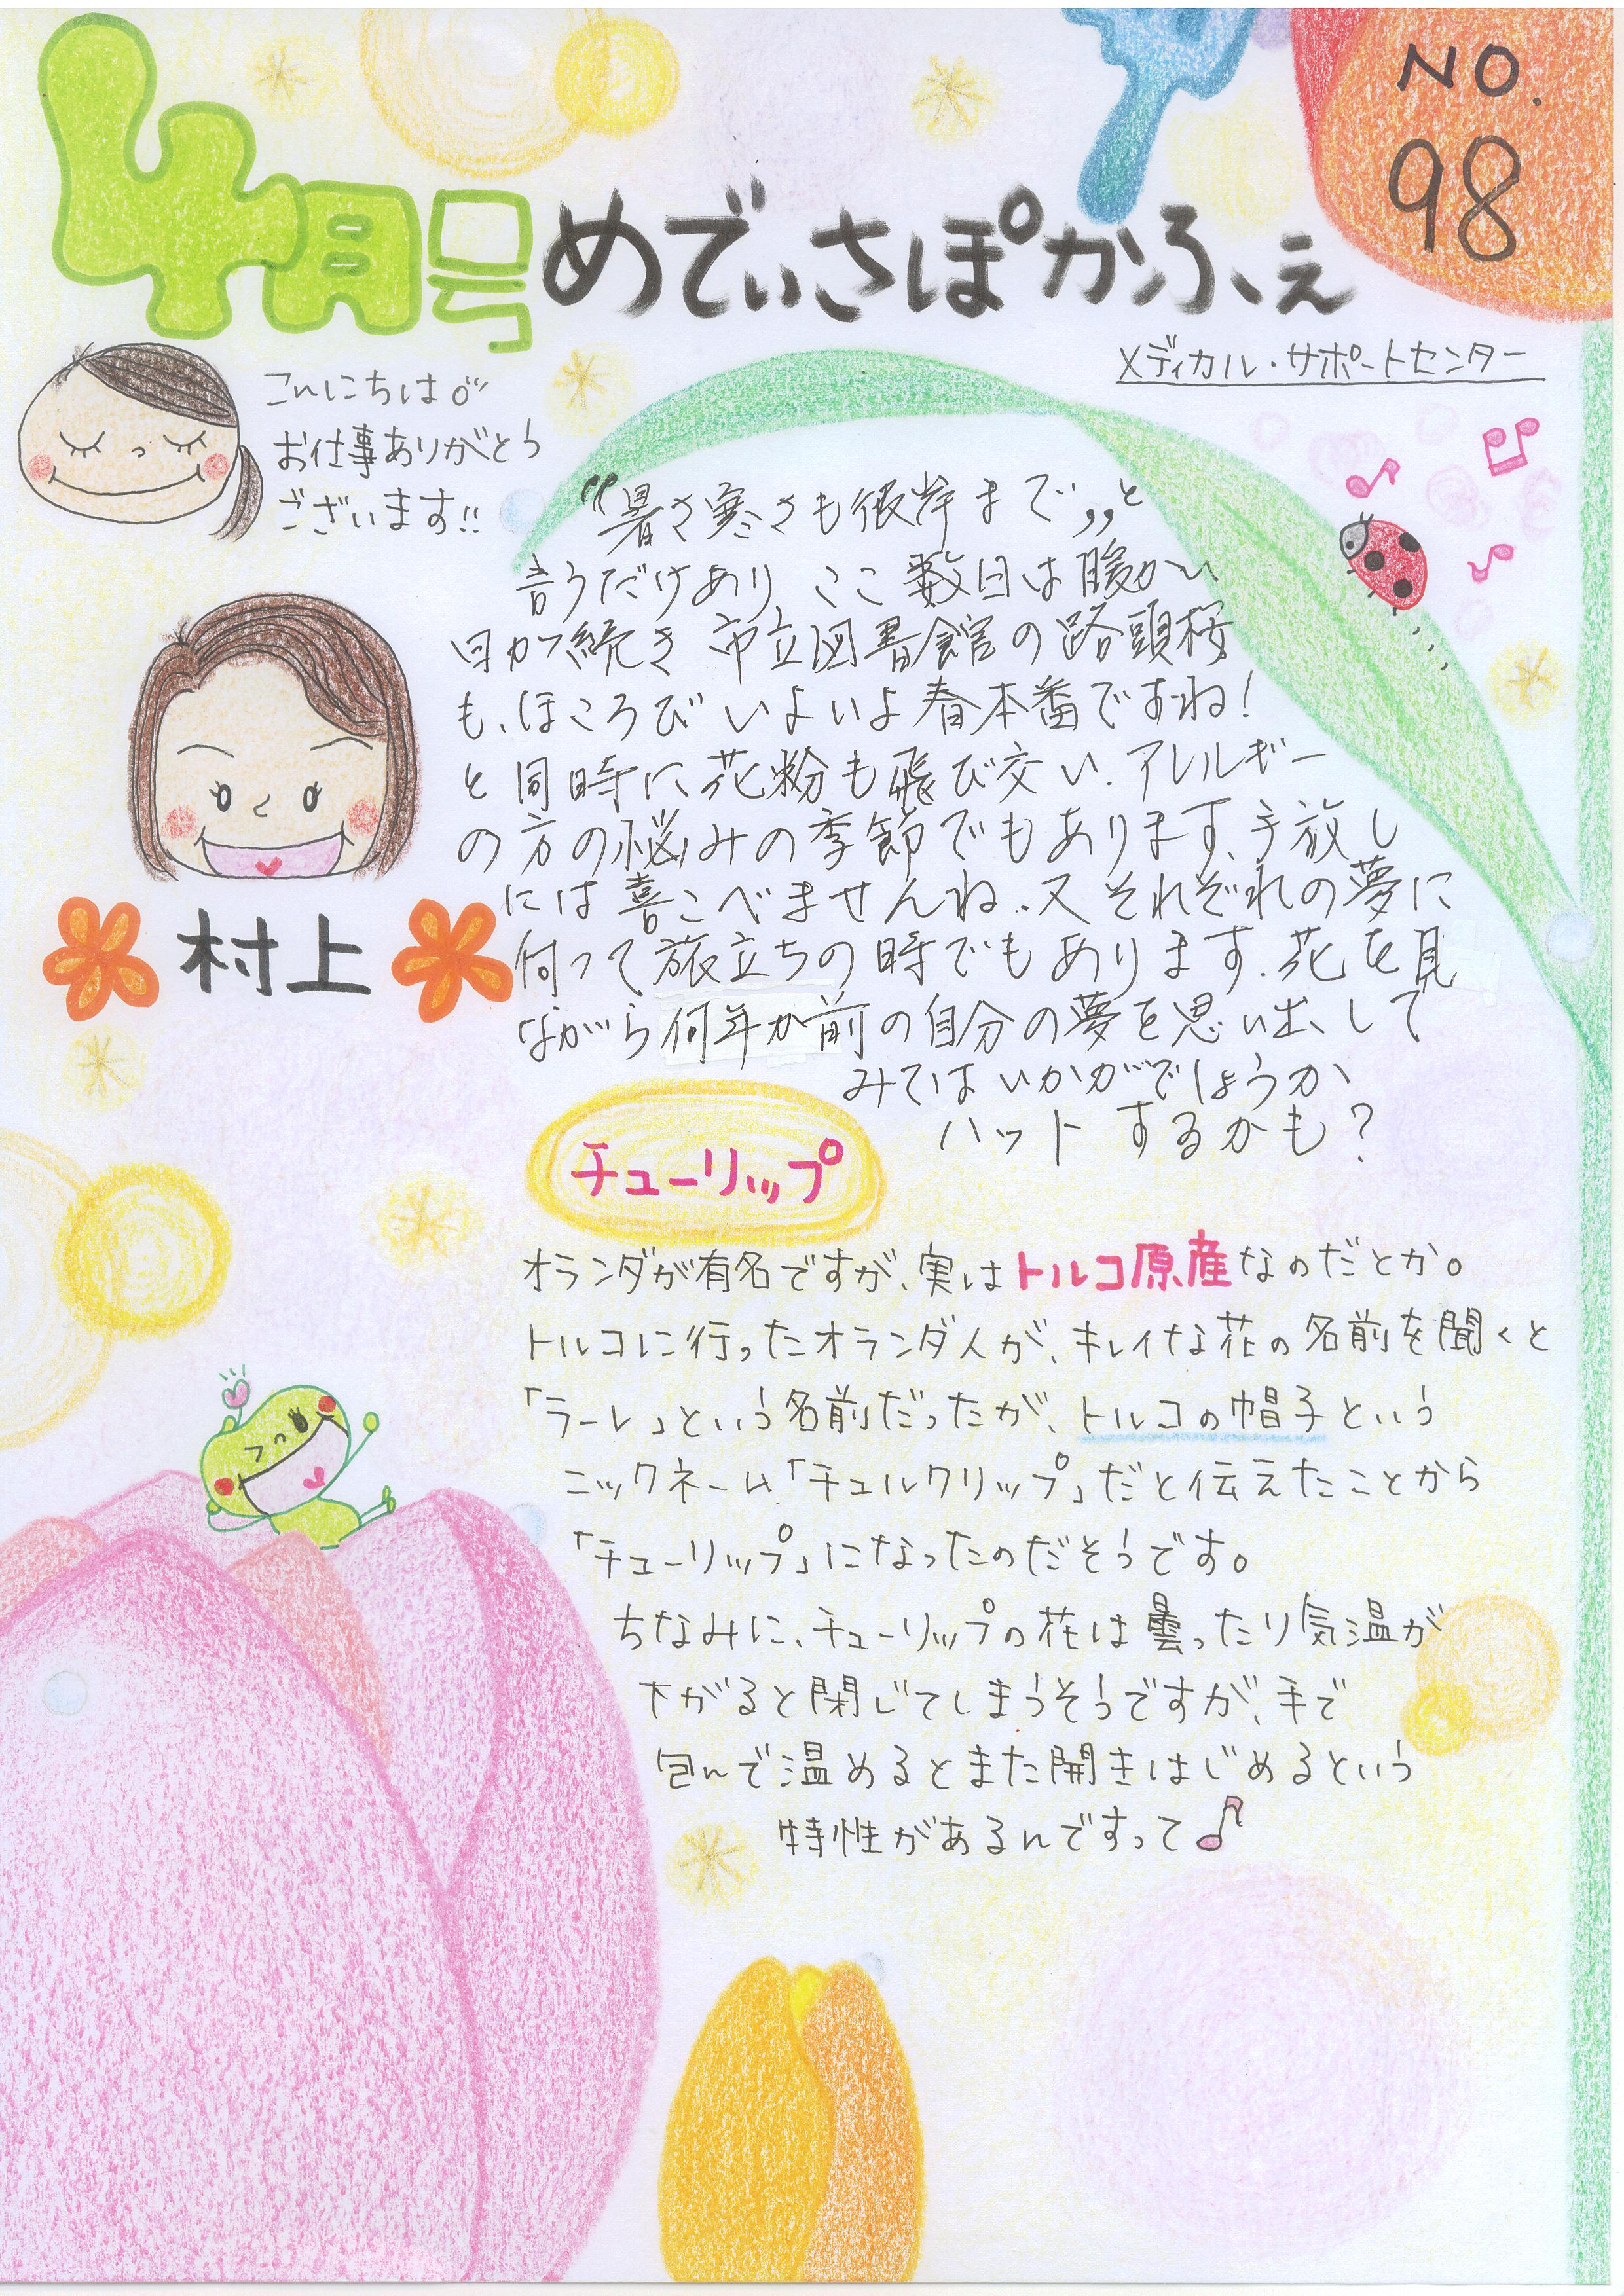 NO.
98
4月号
めでぃさぽかふぇ
メディカル・サポートセンター
こんにちは
お仕事ありがとう
ございます!!
村上
“暑さ寒さも彼岸まで”と
言うだけあり ここ数日は暖かい
日が続き 市立図書館の路頭桜
も、ほころび いよいよ春本番ですね!
と同時に花粉も飛び交い、アレルギー
の方の悩みの季節でもあります、手放し
には喜こべませんね、又それぞれの夢に
向って旅立ちの時でもあります、花を見
ながら何年か前の自分の夢を思い出して
みてはいかがでしょうか
ハットするかも?
チューリップ
オランダが有名ですが、実はトルコ原産なのだとか。
トルコに行ったオランダ人が、キレイな花の名前を聞くと
「ラーレ」という名前だったが、トルコの帽子という
ニックネーム「チュルクリップ」だと伝えたことから
「チューリップ」になったのだそうです。
ちなみに、チューリップの花は曇ったり気温が
下がると閉じてしまうそうですが、手で
包んで温めるとまた開きはじめるという
特性があるんですって♪